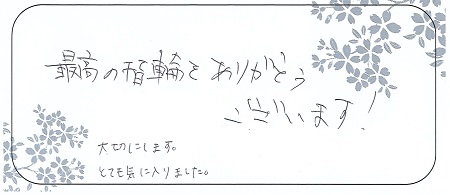 最高の指輪をありがとう
ございます!
大切にします。
とても気に入りました。